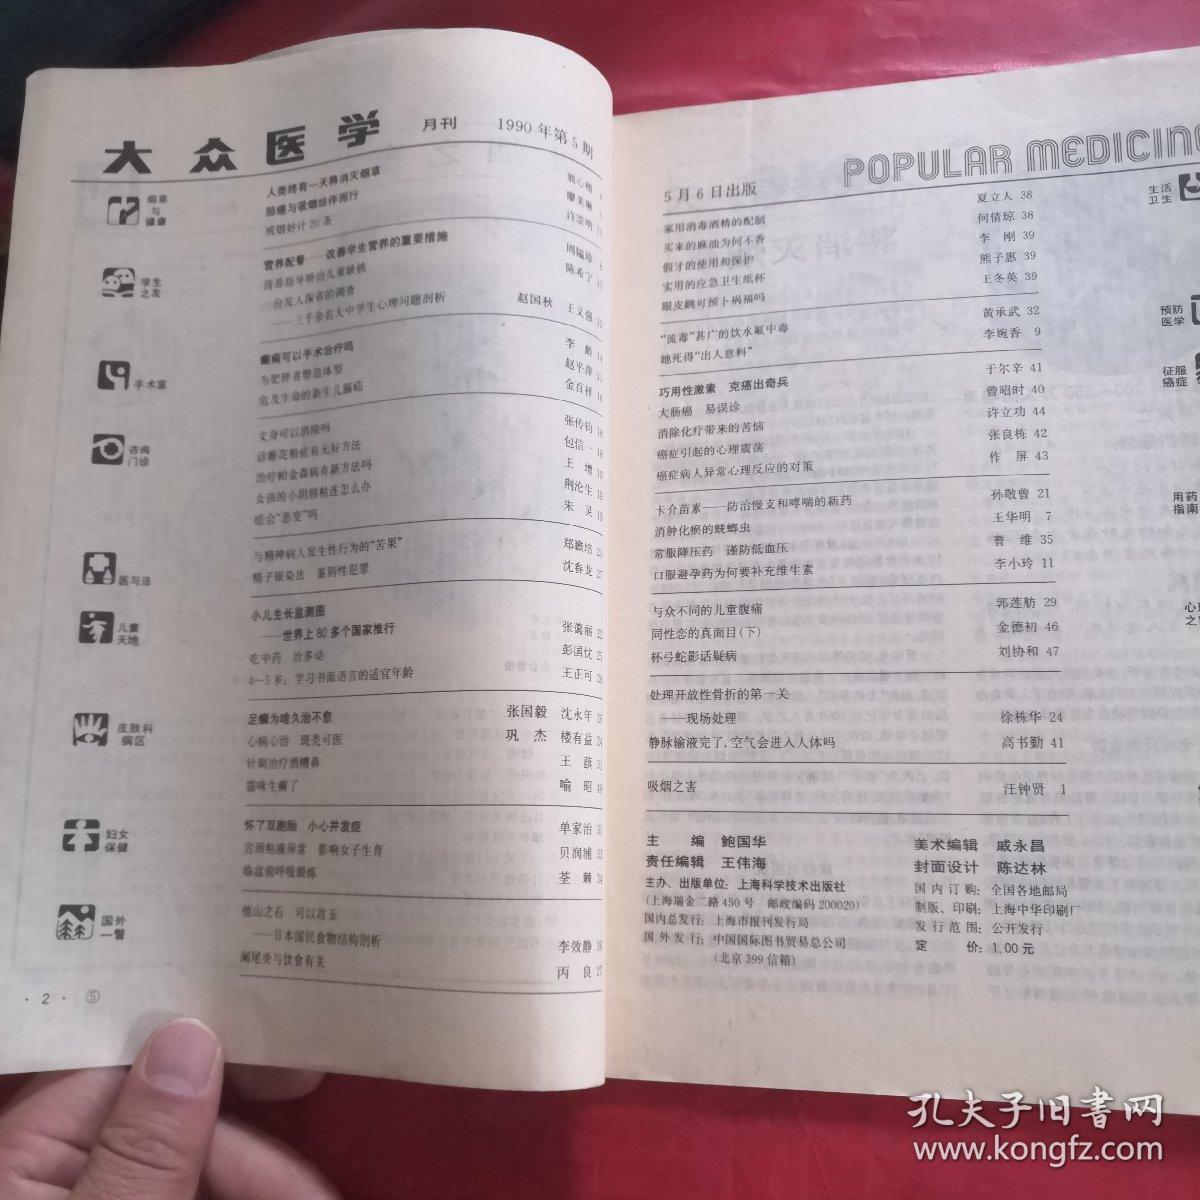 大众医学 月刊 1990年第5期
烟草与健康
人类终有一天将消灭烟草
肺癌与吸烟结伴而行 廖美琳
戒烟妙计20条 许崇明
学生之友
营养配餐——改善学生营养的重要措施 周韫珍
营养指导矫治儿童缺铁 陈希宁
一份发人深省的调查
——三千余名大中学生心理问题剖析 赵国秋 王义强 12
手术室
癫痫可以手术治疗吗 李龄 14
为肥胖者塑造体型 赵平萍 15
危及生命的新生儿膈疝 金百祥 16
咨询门诊
文身可以消除吗 张传钧 18
诊断花粉症有无好方法 包信一 18
治疗帕金森病有新方法吗 王增 19
女孩的小阴唇粘连怎么办 荆沧生 19
痣会“恶变”吗 朱灵 19
医与法
与精神病人发生性行为的“苦果” 郑瞻培 20
精子银染法 鉴别性犯罪 沈春龙 27
儿童天地
小儿生长监测图
——世界上80多个国家推行 张蔼丽 22
吃中药 治多动 彭国忱 25
4～5岁：学习书面语言的适宜年龄 王正可 28
皮肤科病区
足癣为啥久治不愈 张国毅 沈永年 26
心病心治 斑秃可医 巩杰 楼有益 24
针刺治疗酒糟鼻 王蕻 31
猫咪生癣了 喻昭 48
妇女保健
怀了双胞胎 小心并发症 单家治 31
宫颈粘液异常 影响女子生育 贝润浦 33
临盆前呼吸锻炼 荃棘 34
国外一瞥
他山之石 可以攻玉
——日本国民食物结构剖析 李效静 36
阑尾炎与饮食有关 丙良 37
· 2 · ⑤
POPULAR MEDICINE
5月6日出版
生活卫生
家用消毒酒精的配制 夏立人 38
买来的麻油为何不香 何倩琼 38
假牙的使用和保护 李刚 39
实用的应急卫生纸杯 熊子惠 39
眼皮跳可预卜祸福吗 王冬英 39
预防医学
“流毒”甚广的饮水氟中毒 黄承武 32
她死得“出人意料” 李婉香 9
征服癌症
巧用性激素 克癌出奇兵 于尔辛 41
大肠癌 易误诊 曾昭时 40
消除化疗带来的苦恼 许立功 44
癌症引起的心理震荡 张良栋 42
癌症病人异常心理反应的对策 作屏 43
用药指南
卡介苗素——防治慢支和哮喘的新药 孙敬曾 21
消肿化瘀的蜣螂虫 王华明 7
常服降压药 谨防低血压 曹维 35
口服避孕药为何要补充维生素 李小玲 11
与众不同的儿童腹痛 郭莲舫 29
同性恋的真面目（下） 金德初 46
杯弓蛇影话疑病 刘协和 47
处理开放性骨折的第一关
——现场处理 徐栋华 24
静脉输液完了，空气会进入人体吗 高书勤 41
吸烟之害 汪钟贤 1
主编 鲍国华
责任编辑 王伟海
主办、出版单位：上海科学技术出版社
（上海瑞金二路450号 邮政编码200020）
国内总发行：上海市报刊发行局
国外发行：中国国际图书贸易总公司
（北京399信箱）
美术编辑 戚永昌
封面设计 陈达林
国内订购：全国各地邮局
制版、印刷：上海中华印刷厂
发行范围：公开发行
定价：1.00元
孔夫子旧书网
www.kongfz.com